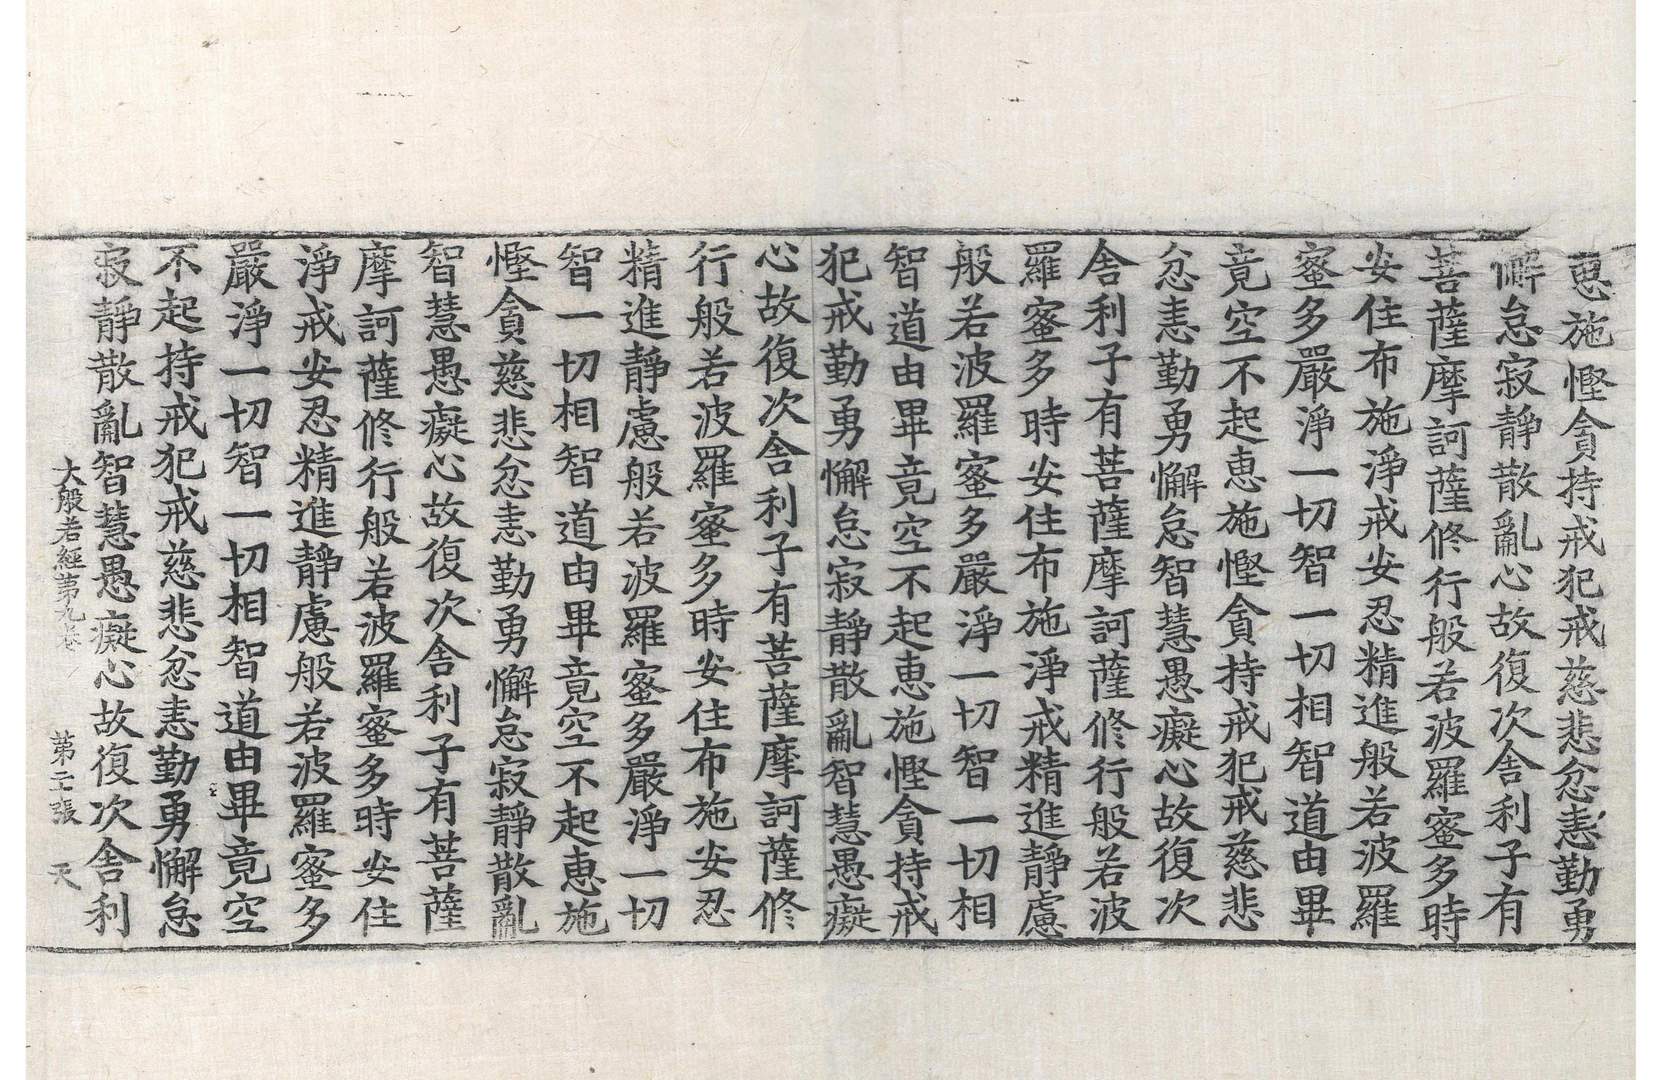 惠施慳貪持戒犯戒慈悲忿恚勤勇
懈怠寂靜散亂心故復次舍利子有
菩薩摩訶薩修行般若波羅蜜多時
安住布施淨戒安忍精進般若波羅
蜜多嚴淨一切智一切相智道由畢
竟空不起惠施慳貪持戒犯戒慈悲
忿恚勤勇懈怠智慧愚癡心故復次
舍利子有菩薩摩訶薩修行般若波
羅蜜多時安住布施淨戒精進靜慮
般若波羅蜜多嚴淨一切智一切相
智道由畢竟空不起惠施慳貪持戒
犯戒勤勇懈怠寂靜散亂智慧愚癡
心故復次舍利子有菩薩摩訶薩修
行般若波羅蜜多時安住布施安忍
精進靜慮般若波羅蜜多嚴淨一切
智一切相智道由畢竟空不起惠施
慳貪慈悲忿恚勤勇懈怠寂靜散亂
智慧愚癡心故復次舍利子有菩薩
摩訶薩修行般若波羅蜜多時安住
淨戒安忍精進靜慮般若波羅蜜多
嚴淨一切智一切相智道由畢竟空
不起持戒犯戒慈悲忿恚勤勇懈怠
寂靜散亂智慧愚癡心故復次舍利
大般若經第九卷 第二張 天